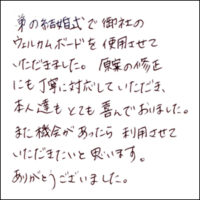 弟の結婚式で御社の
ウェルカムボードを使用させて
いただきました。原案の修正
にも丁寧に対応していただき、
本人達もとても喜んでおりました。
また機会があったら利用させて
いただきたいと思います。
ありがとうございました。